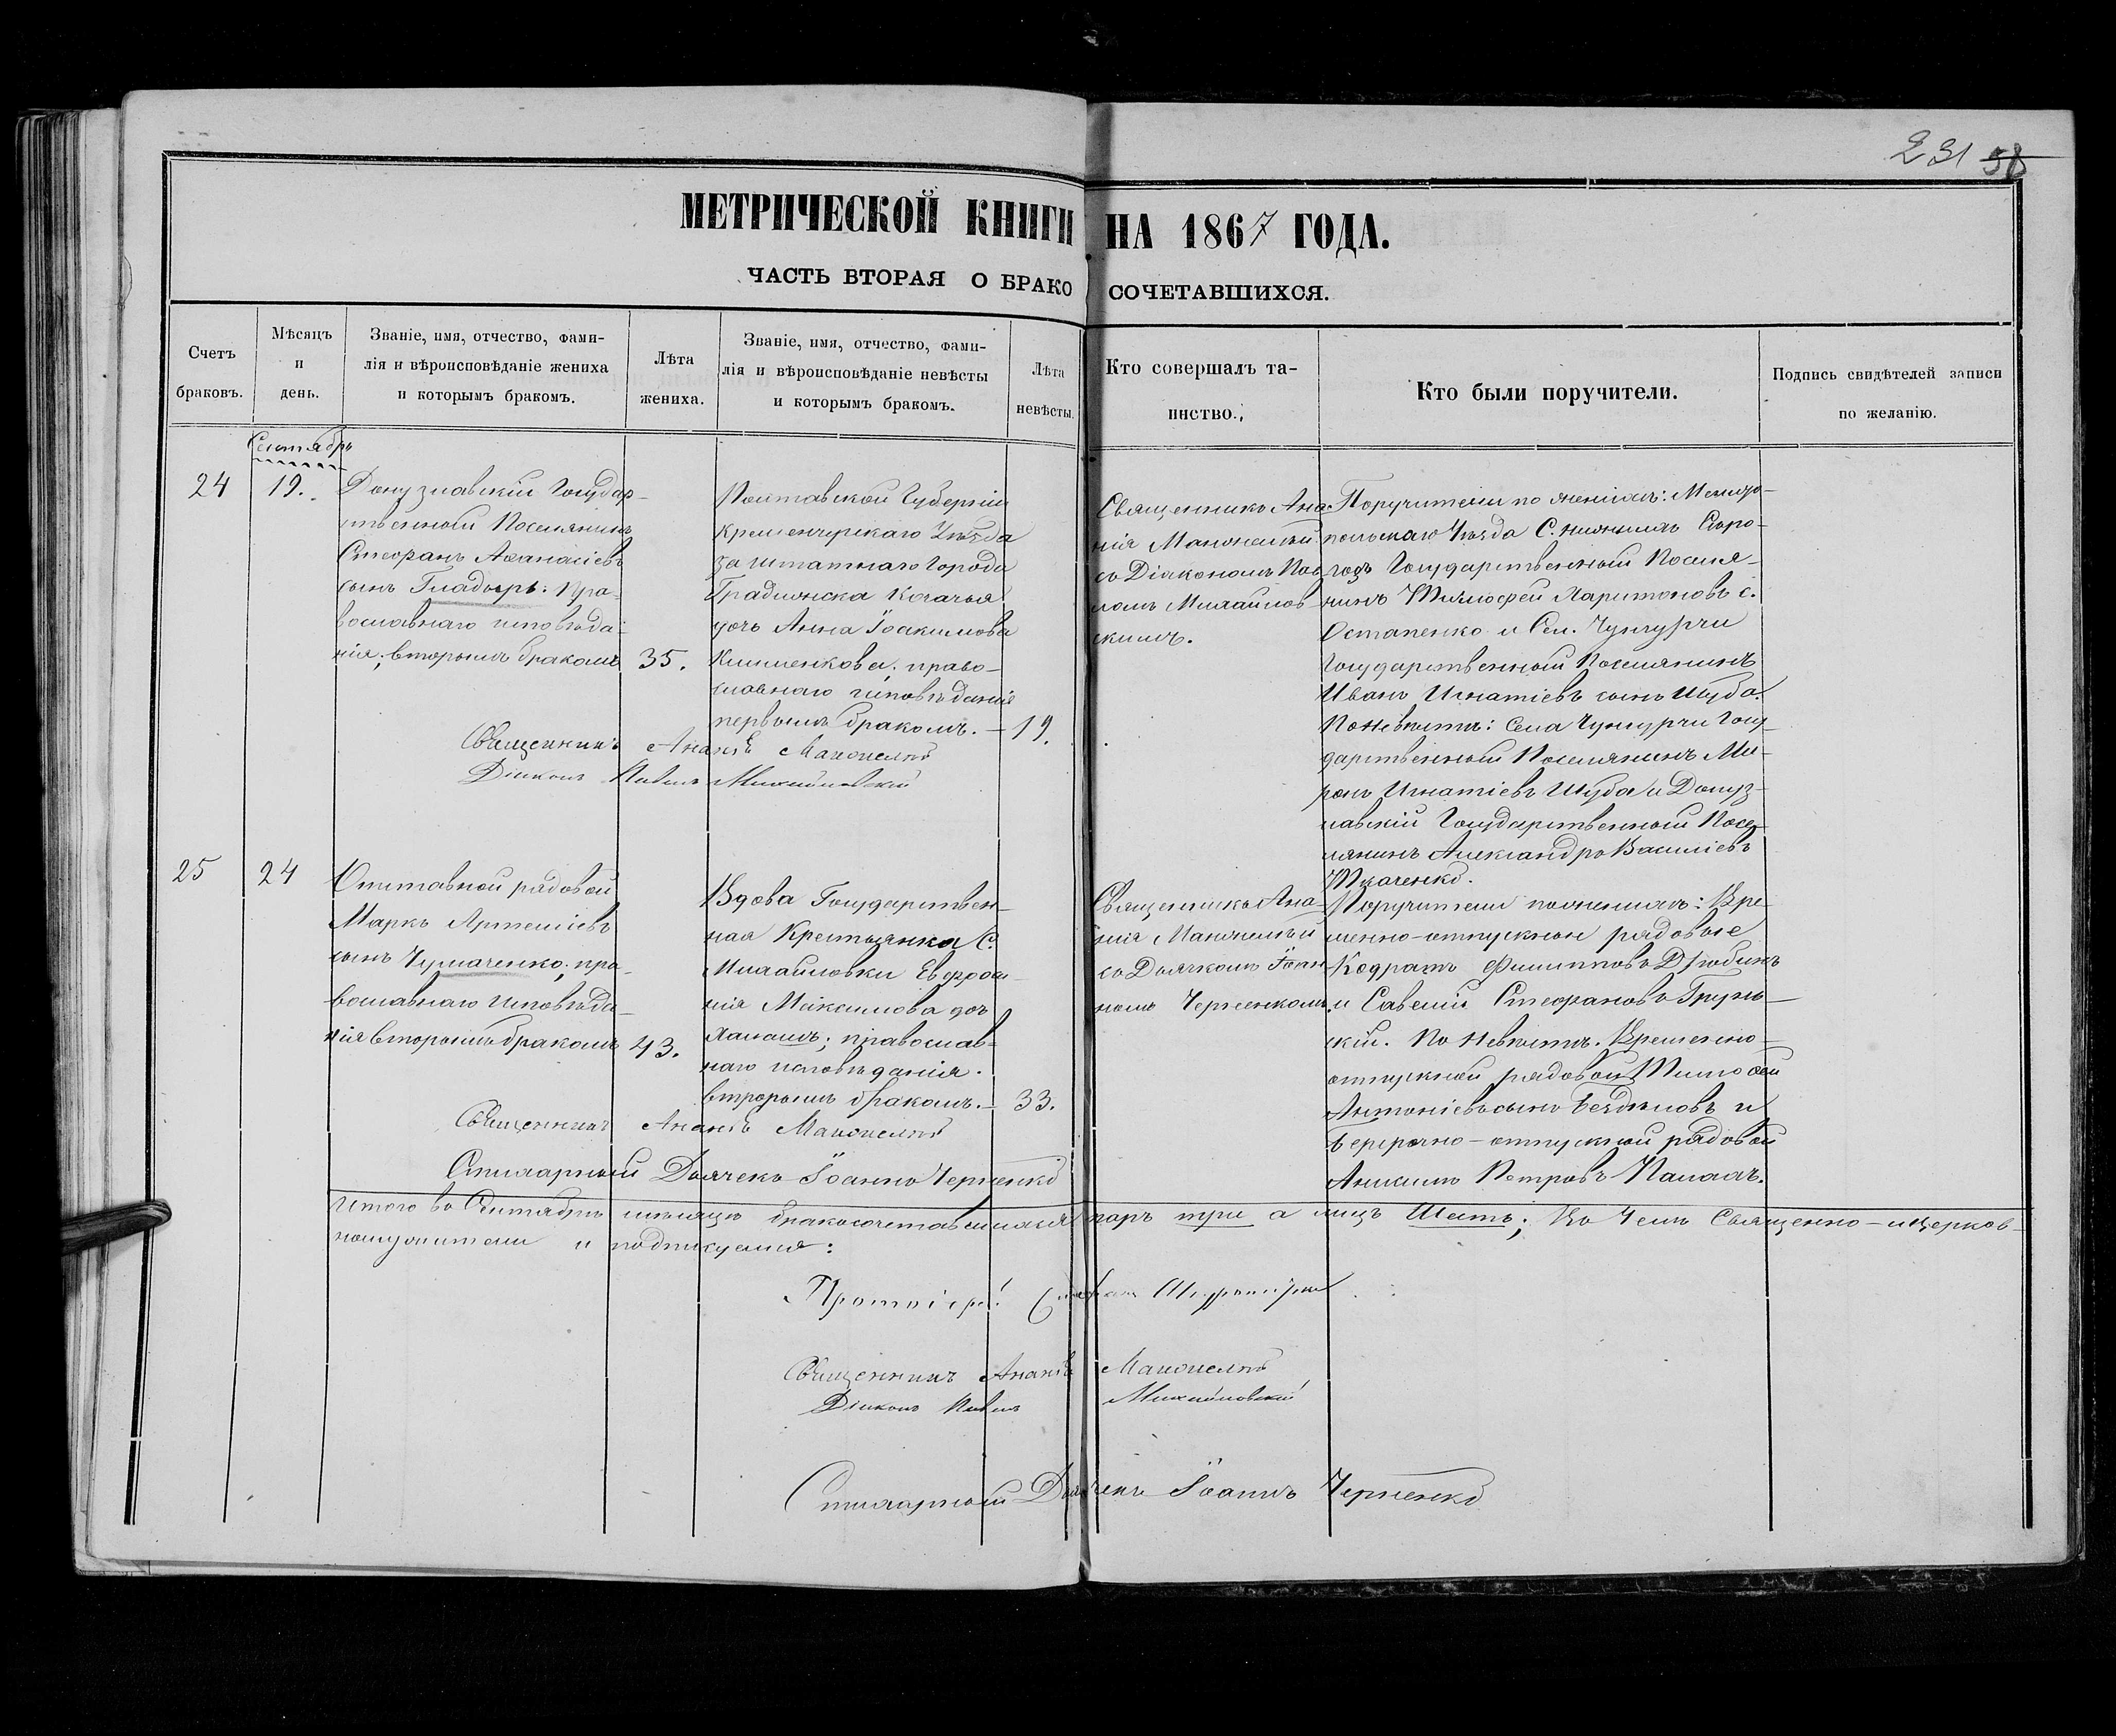 231 58
МЕТРИЧЕСКОЙ КНИГИ НА 1867 ГОДА.
ЧАСТЬ ВТОРАЯ О БРАКОСОЧЕТАВШИХСЯ.
Счетъ
браковъ.
Мѣсяцъ
и
день.
Званіе, имя, отчество, фами-
лія и вѣроисповѣданіе жениха
и которымъ бракомъ.
Лѣта
жениха.
Званіе, имя, отчество, фами-
лія и вѣроисповѣданіе невѣсты
и которымъ бракомъ.
Лѣта
невѣсты.
Кто совершалъ та-
инство.
Кто были поручители.
Подпись свидѣтелей записи
по желанію.
Сентябрь
24
19.
Донузлавскій Государ-
ственный Поселянинъ
Стефанъ Аѳанасіевъ
сынъ Гладырь: Пра-
вославнаго исповѣда-
нія; вторымъ бракомъ
35.
Полтавской Губерніи
Кременчугскаго Уѣзда
заштатнаго Города
Градижска Козачья
дочь Анна Іоакимова
Клименкова; право-
славнаго исповѣданія
первымъ бракомъ. —
19.
Священникъ Ана-
нія
со Діакономъ Пав-
ломъ Михайлов-
скимъ.
Поручители по женихѣ: Мелито-
польскаго Уѣзда С. Нижнихъ Сѣро-
гозъ Государственный Поселя-
нинъ Тимоѳей Харитоновъ с.
Остапенко и Сел. Чунгурчи
Государственный Поселянинъ
Иванъ Игнатіевъ сынъ Шуба.
По Невѣстѣ: Села Чунгурчи Госу-
дарственный Поселянинъ Ми-
ронъ Игнатіевъ Шуба и Донуз-
лавскій Государственный Посе-
лянинъ Александръ Василіевъ
Ткаченко.
Священникъ Ананія
Діаконъ Павелъ Михайловскій
25
24
Отставной рядовой
Маркъ Артеміевъ
сынъ Чумаченко; пра-
вославнаго Исповѣда-
нія вторымъ бракомъ
43.
Вдова Государствен-
ная Крестьянка С.
Михайловки Евфроси-
нія Максимова доч
православ-
наго исповѣданія.
вторымъ бракомъ. —
33.
Священникъ Ана-
нія
со Дьячкомъ Іоан-
номъ Черненкомъ.
Поручители по женихѣ: Вре-
менно-отпускные рядовые
Кодратъ Филипповъ Дзюбинъ
и Савелій Стефановъ
По Невѣстѣ. Временно-
отпускной рядовой Тимоѳей
Антоніевъ сынъ и
безсрочно-отпускной рядовой
Анисимъ Петровъ
Священникъ Ананія
Стихарный Дьячекъ Іоаннъ Черненко
Итого въ Сентябрѣ мѣсяцѣ бракосочетавшихся паръ три а лицъ Шесть; Въ Чемъ Священно-и церков-
нослужители и подписуемся:
Протоіерей Стефанъ
Священникъ Ананія
Діаконъ Павелъ Михайловскій
Стихарный Дьячекъ Іоаннъ Черненко